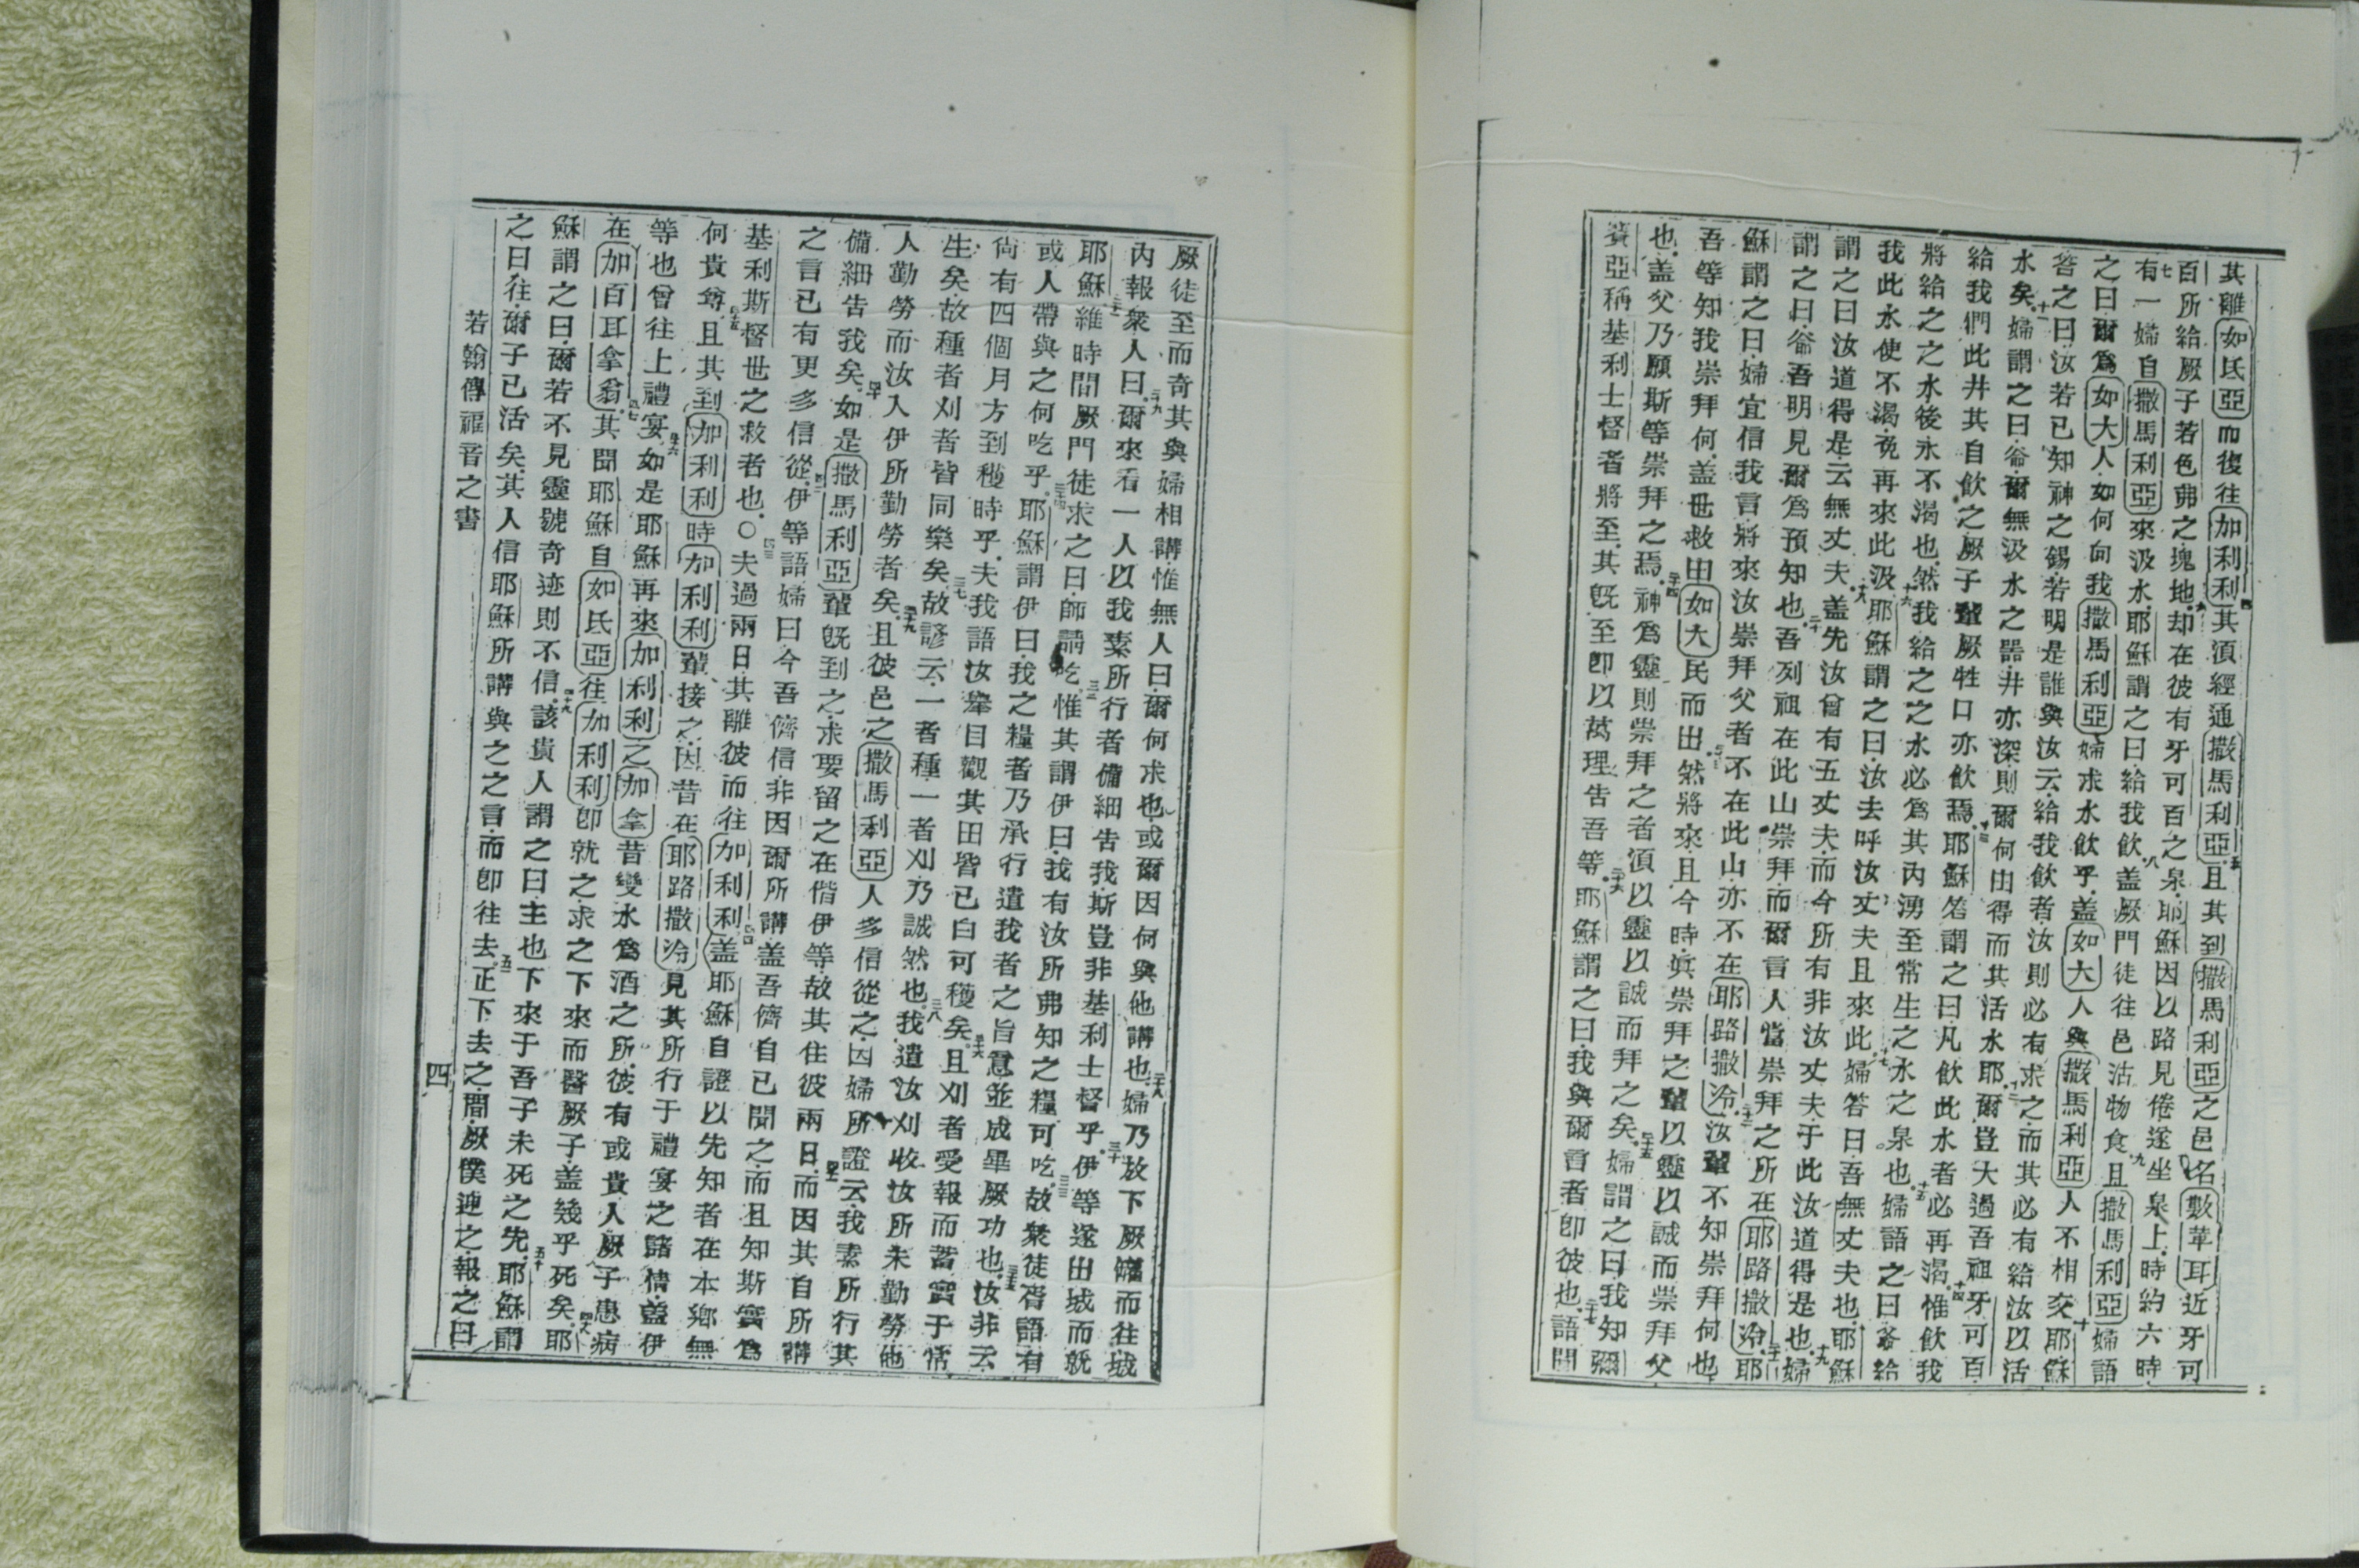 其離如氐亞而復往加利利四其湏經通撒馬利亞五且其到撒馬利亞之邑名數葦耳近牙可
百所給厥子若色弗之塊地六却在彼有牙可百之泉耶穌因以路見倦遂坐泉上時約六時
七有一婦自撒馬利亞來汲水耶穌謂之曰給我飲八盖厥門徒往邑沽物食九且撒馬利亞婦語
之曰爾爲如大人如何向我撒馬利亞婦求水飲乎盖如大人與撒馬利亞人不相交十耶穌
答之曰汝若已知神之錫若明是誰與汝云給我飲者汝則必有求之而其必有給汝以活
水矣十一婦謂之曰爺爾無汲水之器井亦深則爾何由得而其活水耶十二爾豈大過吾祖牙可百
給我們此井其自飲之厥子輩厥牲口亦飲焉十三耶穌答謂之曰凡飲此水者必再渴十四惟飲我
將給之之水後永不渴也然我給之之水必爲其內湧至常生之水之泉也十五婦語之曰爺給
我此水使不渴免再來此汲十六耶穌謂之曰汝去呼汝丈夫且來此十七婦答曰吾無丈夫也耶穌
謂之曰汝道得是云無丈夫十八盖先汝曾有五丈夫而今所有非汝丈夫于此汝道得是也十九婦
謂之曰爺吾明見爾爲預知也二十吾列祖在此山崇拜而爾言人當崇拜之所在耶路撒冷二十一耶
穌謂之曰婦宜信我言將來汝崇拜父者不在此山亦不在耶路撒冷二十二汝輩不知崇拜何也
吾等知我崇拜何盖世救由如大民而出二十三然將來且今時眞崇拜之輩以靈以誠而崇拜父
也盖父乃願斯等崇拜之焉二十四神爲靈則崇拜之者湏以靈以誠而拜之矣二十五婦謂之曰我知彌
賽亞稱基利士督者將至其旣至卽以萬理告吾等二十六耶穌謂之曰我與爾言者卽彼也二十七語間
厥徒至而奇其與婦相講惟無人曰爾何求也或爾因何與他講也二十八婦乃放下厥罐而往城
內報衆人曰二十九爾來看一人以我素所行者備細告我斯豈非基利士督乎三十伊等遂出城而就
耶穌三十一維時間厥門徒求之曰師請吃三十二惟其謂伊曰我有汝所弗知之糧可吃三十三故衆徒相語有
或人帶與之何吃乎三十四耶穌謂伊曰我之糧者乃承行遣我者之旨意並成畢厥功也三十五汝非云
尙有四個月方到穫時乎夫我語汝舉目觀其田皆已白可穫矣三十六且刈者受報而蓄實于常
生矣故種者刈者皆同樂矣三十七故諺云一者種一者刈乃誠然也三十八我遣汝刈收汝所未勤勞他
人勤勞而汝入伊所勤勞者矣三十九且彼邑之撒馬利亞人多信從之因婦所證云我素所行其
備細告我矣四十如是撒馬利亞輩旣到之求要留之在偕伊等故其住彼兩日四十一而因其自所講
之言已有更多信從四二伊等語婦曰今吾儕信非因爾所講盖吾儕自已聞之而且知斯實爲
基利斯督世之救者也○四三夫過兩日其離彼而往加利利四四盖耶穌自證以先知者在本鄉無
何貴尊四五且其到加利利時加利利輩接之因昔在耶路撒冷見其所行于禮宴之諸情盖伊
等也曾往上禮宴四六如是耶穌再來加利利之加拿昔變水爲酒之所彼有或貴人厥子患病
在加百耳拿翁四七其聞耶穌自如氐亞往加利利卽就之求之下來而醫厥子盖幾乎死矣四八耶
穌謂之曰爾若不見靈號奇迹則不信四十九該貴人謂之曰主也下來于吾子未死之先五十耶穌謂
之曰往爾子已活矣其人信耶穌所講與之之言而卽往去五一正下去之間厥僕迎之報之曰
若翰傳福音之書
四